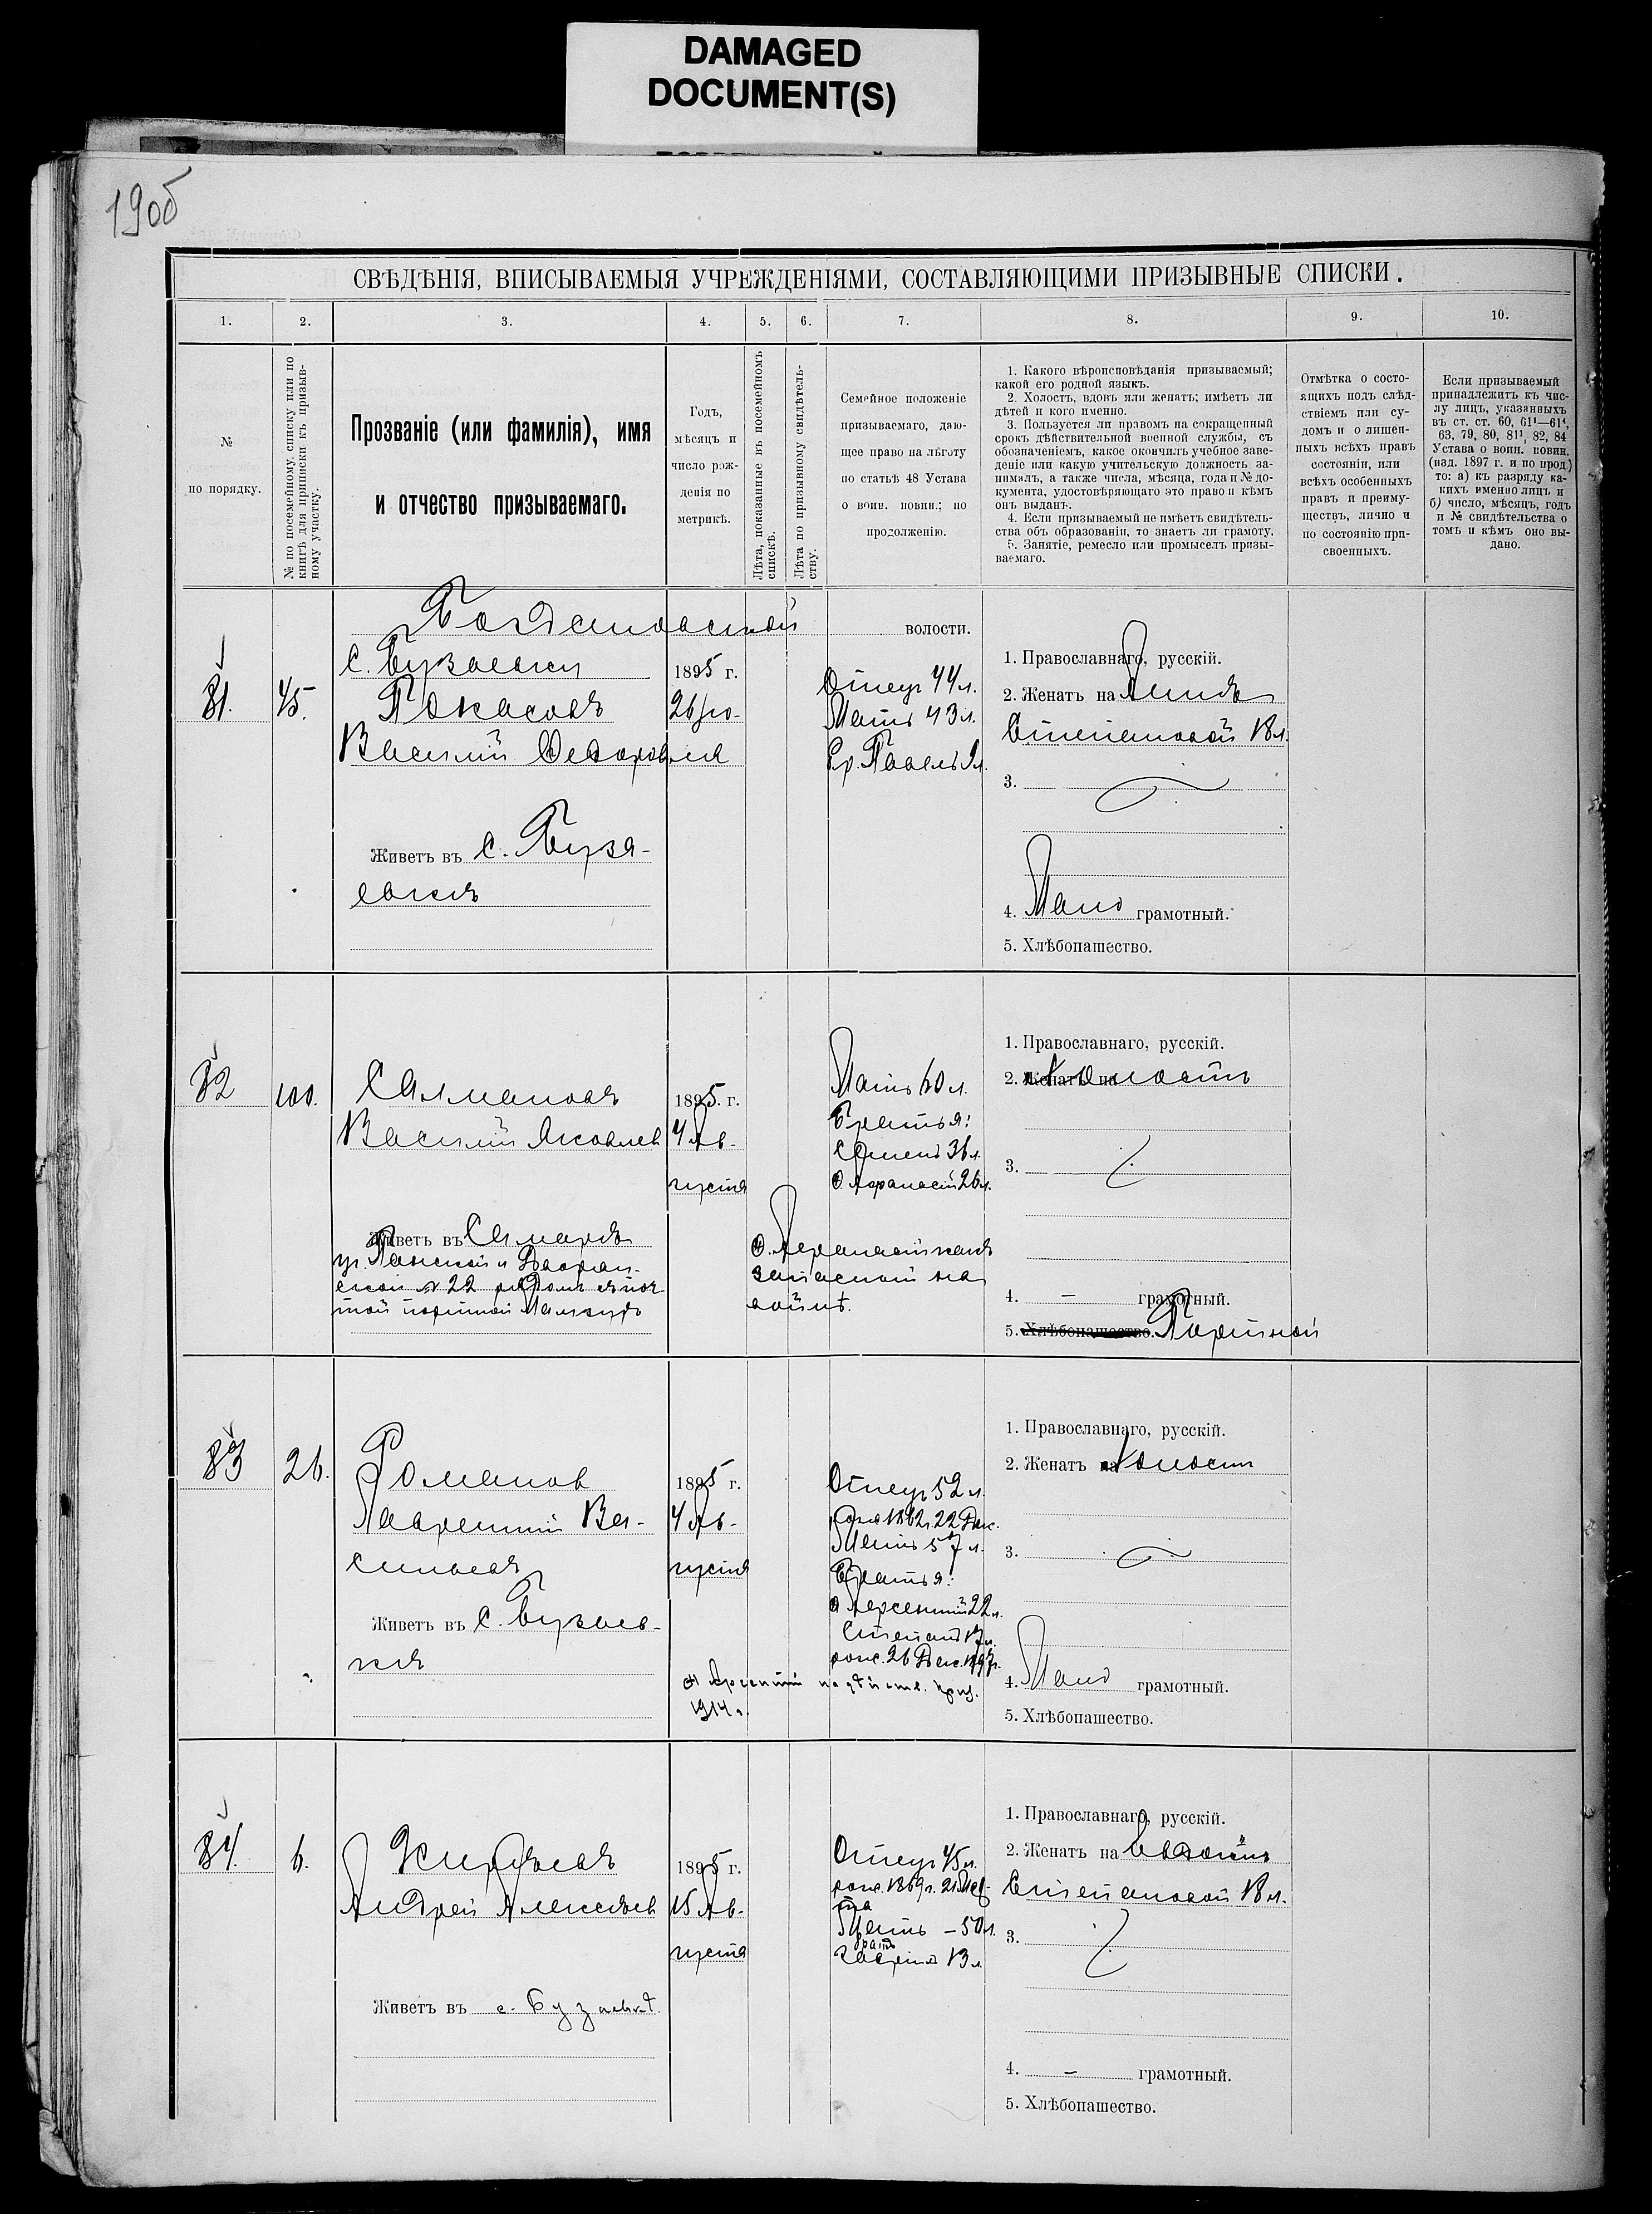 DAMAGED
DOCUMENT(S)
190об
СВѢДѢНІЯ, ВПИСЫВАЕМЫЯ УЧРЕЖДЕНІЯМИ, СОСТАВЛЯЮЩИМИ ПРИЗЫВНЫЕ СПИСКИ.
1.
2.
3.
4.
5.
6.
7.
8.
9.
10.
№
по порядку.
№ по посемейному списку или по
книгѣ для приписки къ призыв-
ному участку.
Прозваніе (или фамилія), имя
и отчество призываемаго.
Годъ,
мѣсяцъ и
число рож-
денія по
метрикѣ.
Лѣта, показанные въ посемейномъ
спискѣ.
Лѣта по призывному свидѣтель-
ству.
Семейное положеніе
призываемаго, даю-
щее право на льготу
по статьѣ 48 Устава
о воин. повин.; по
продолженію.
1. Какого вѣроисповѣданія призываемый;
какой его родной языкъ.
2. Холостъ, вдовъ или женатъ; имѣетъ ли
дѣтей и кого именно.
3. Пользуется ли правомъ на сокращенный
срокъ дѣйствительной военной службы, съ
обозначеніемъ, какое окончилъ учебное заве-
деніе или какую учительскую должность за-
нималъ, а также числа, мѣсяца, года и № до-
кумента, удостовѣряющаго это право и кѣмъ
онъ выданъ.
4. Если призываемый не имѣетъ свидѣтель-
ства объ образованіи, то знаетъ ли грамоту.
5. Занятіе, ремесло или промыселъ призы-
ваемаго.
Отмѣтка о состо-
ящихъ подъ слѣд-
ствіемъ или су-
домъ и о лишен-
ныхъ всѣхъ правъ
состоянія, или
всѣхъ особенныхъ
правъ и преиму-
ществъ, лично и
по состоянію при-
своенныхъ.
Если призываемый
принадлежитъ къ чис-
лу лицъ, указанныхъ
въ ст. ст. 60, 61¹—61⁴,
63, 79, 80, 81¹, 82, 84
Устава о воин. повин.
(изд. 1897 г. и по прод.)
то: а) къ разряду ка-
кихъ именно лицъ и
б) число, мѣсяцъ, годъ
и № свидѣтельства о
томъ и кѣмъ оно вы-
дано.
волости.
81.
45.
с. Бузаевки
Василій Федоровъ
Живетъ въ с. Буза-
евкѣ
1895 г.
Отецъ 44 л.
Мать 43 л.
Бр. Павелъ 9 л.
1. Православнаго, русскій.
2. Женатъ на
Степановой 18 л.
3.
4. Мало грамотный.
5. Хлѣбопашество.
82
100.
Салмановъ
Василій Яковлев
Живетъ въ Самарѣ
ул. Панской и Дворян-
ской № 22
1895. г.
4 Ав-
густа
Мать 60 л.
Братья:
Семенъ 36 л.
Афанасій 26 л.
Афанасій какъ
запасной на
войнѣ.
1. Православнаго, русскій.
2. Женатъ на Холостъ
3.
4. — грамотный.
5. Хлѣбопашество. Портной
83
26.
Романов
Лаврентій Ва-
сильевъ
Живетъ въ с. Бузаев-
кѣ
1895 г.
4 Ав-
густа
Отецъ 52 л.
род. 1862 г. 22 Дек.
Мать 57 л.
Братья:
Арсентій 22 л.
Степанъ 17 л.
рож. 26 Дек. 1897 г.
Арсентій
1914 г.
1. Православнаго, русскій.
2. Женатъ на Холостъ
3.
4. Мало грамотный.
5. Хлѣбопашество.
84.
6.
Андрей Алексѣев
Живетъ въ с. Бузаевкѣ.
1895 г.
15 Ав-
густа
Отецъ 45 л.
рож. 1869 г.
Мать — 50 л.
братъ
13 л.
1. Православнаго, русскій.
2. Женатъ на
Степановой 18 л.
3.
4. — грамотный.
5. Хлѣбопашество.